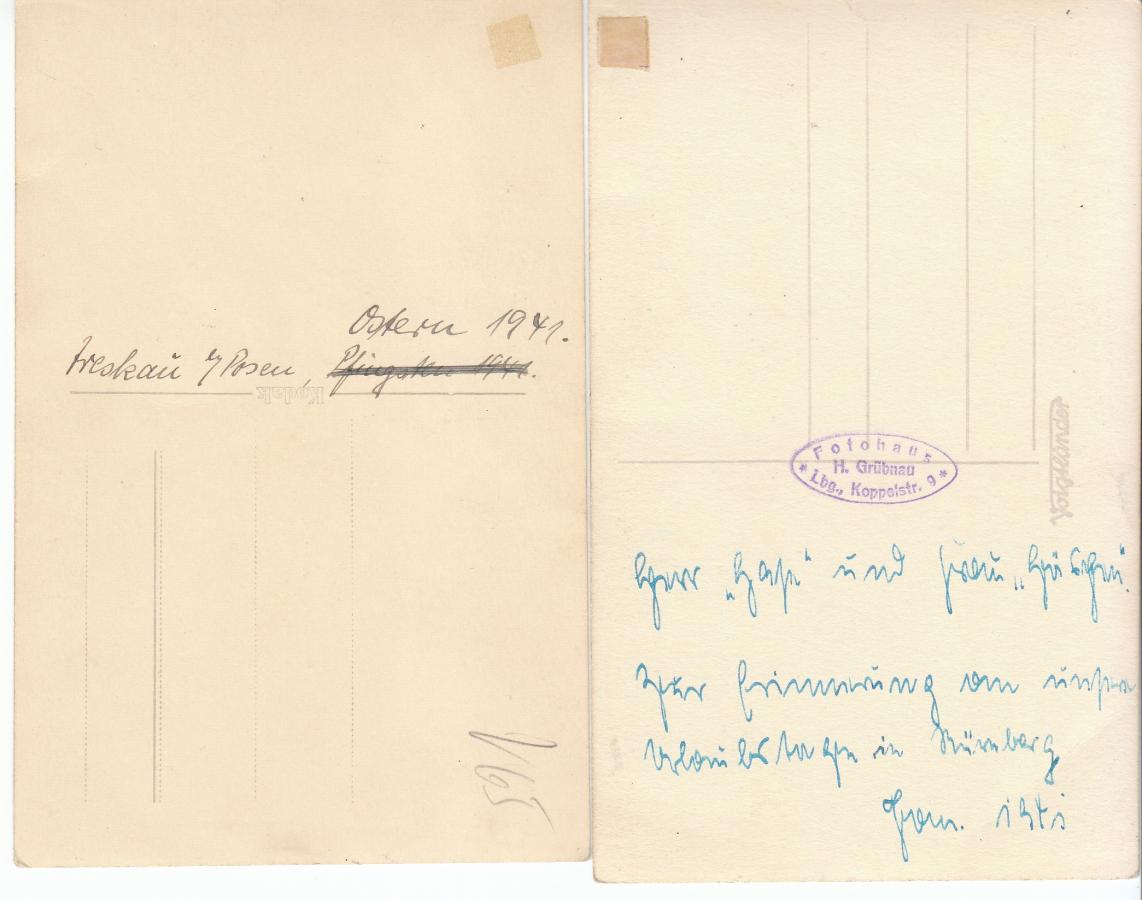 Ostern 1941.
Treskau b/Posen, Pfingsten 1941.
Kodak
V63
Fotohaus
H. Grübnau
* Lbg., Koppelstr. 9 *
Voigtländer
Herr „Hase“ und Frau „Häschen“.
Zur Erinnerung an unsere
Urlaubstage in Nürnberg
1941